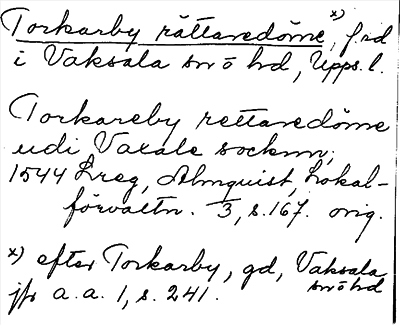 Torkarby rättaredöme x), f.rd
i Vaksala sn o hd, Upps.l.
Torkareby rettaredöme
udi Vaxale socknn;
1544 Lreg, Almquist, Lokal-
förvaltn. 3, s.167. orig.
x) efter Torkarby, gd, Vaksala
sn o hd
jfr a.a. 1, s. 241.